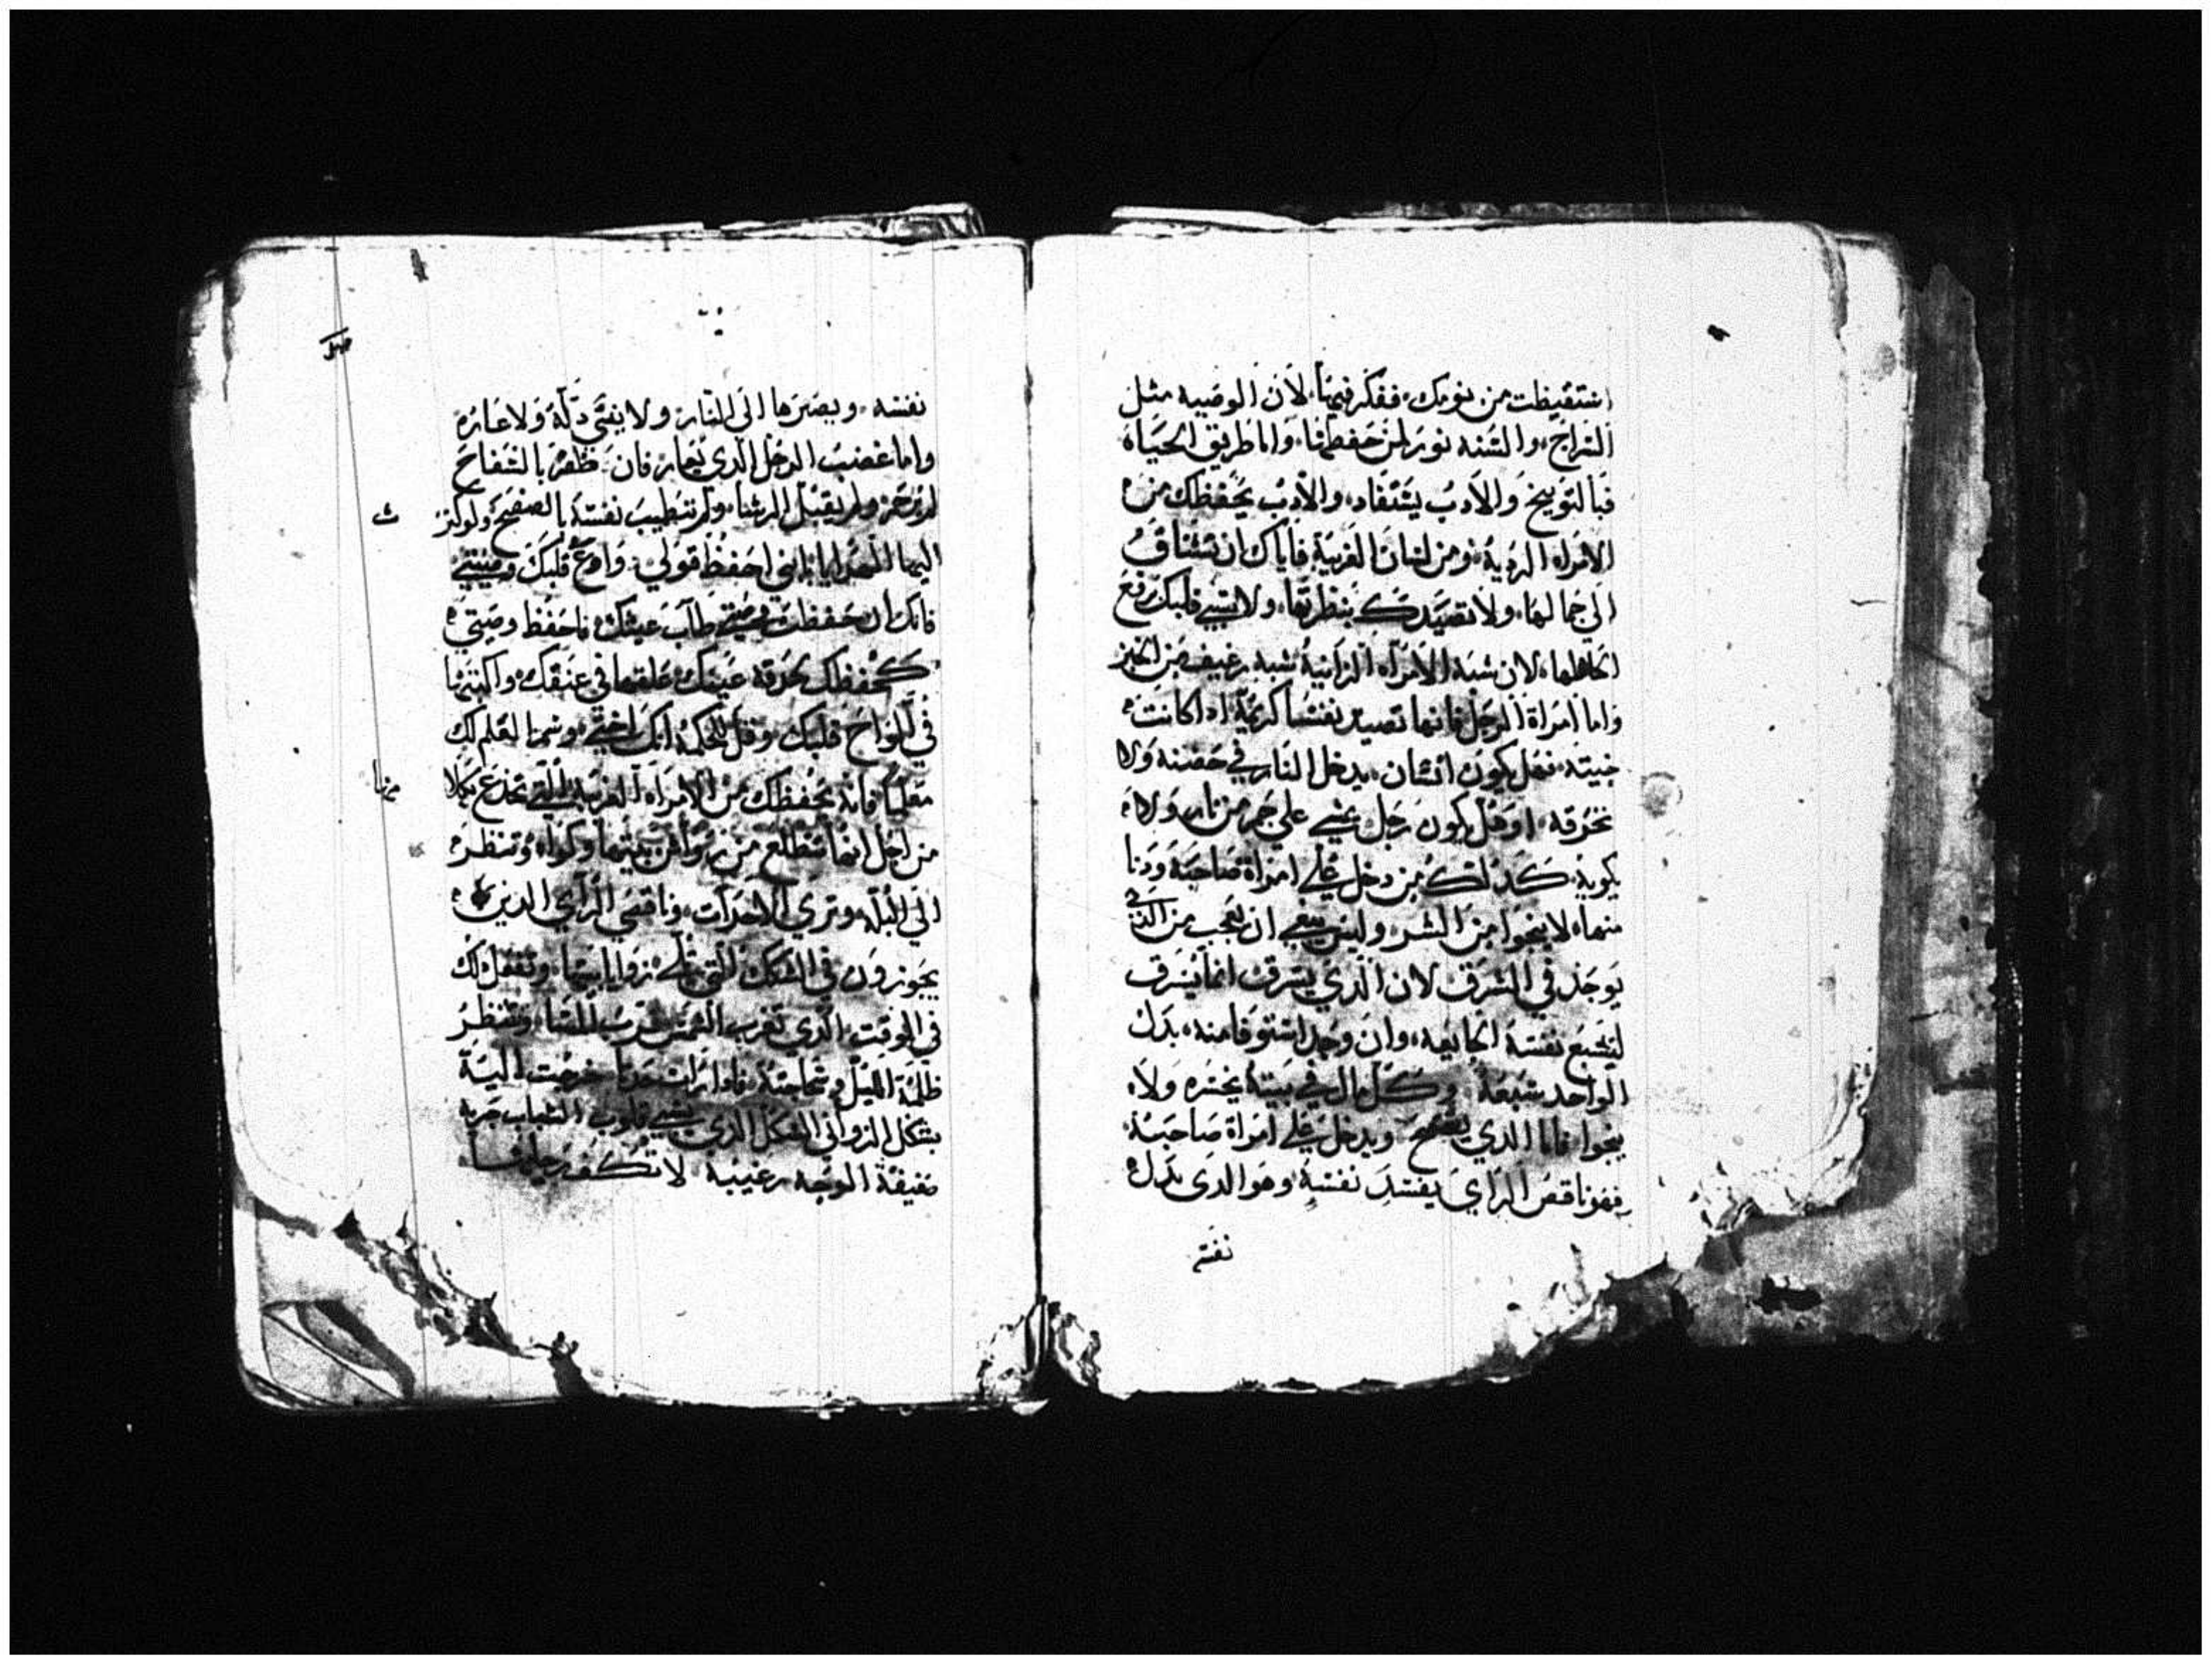 استقيظت من نومك، ففكر فيها، لان الوصيه مثل
السراج، والسنه نور لمن حفظها، واما طريق الحياه
فبالتوبيخ والادب يستفاد، والادب يحفظك من
الامراه الرديه، ومن لسان الغريبة، فاياك ان تشتاق
الى جمالها، ولا تصيدك بنظرتها، ولا يسبي قلبك رفع
الحاظها، لان شبه الامراه الزانية شبه رغيف من الخبز
واما امراة الرجل فانها تصيد نفسا كريمة اذا كانت
خبيثه، فهل يكون انسان، يدخل النار في حضنه ولا
تحرقه، او هل يكون رجل يمشي علي جمر من نار، ولا
يكويه، كدلك من دخل علي امراة صاحبه ودنا
منها، لا ينجوا من الشر، وليس ينبغي ان نعجب من الذي
يوجد في السرق لان الدي يسرق انما يسرق
ليشبع نفسه الجايعه، وان وجد استوفا منه، بدل
الواحد سبعة وكل مال في بيته يخسره ولا
ينجوا فاما الدي ويدخل علي امراة صاحبه
فهو ناقص الراي يفسد نفسه وهو الدي بدل
نفسه
نفسه، ويصيرها الى النار، ولا يفنى دله ولا عاره
واما غضب الرجل الدي يغار، فان ظفر بالسفاح
لم يرحمه ولم يقبل الرشا، ولم تطيب نفسه بالصفح ولو كثر
اليها الهدايا يا ابني احفظ قولي، واوع قلبك وصيتي
فانك ان حفظت وصيتي طاب عيشك، فاحفظ وصيتي
كحفظك لحدقة عينيك، علقها في عنقك، واكتبها
في الواح قلبك وقل للحكمه انك اختي، وسمها لتعلم لك
معلما فانه يحفظك من الامراه الغريبة التي تخدع بكلا
مها
من اجل انها تتطلع من رواشن بيتها وكواه، وتنظر
الي البله، وتري الاحدات، وناقصي الراي الدين
يجوزون في السكك التي تلي زوايا بيتها، وتفعل دلك
في الوقت، الدي تغرب الشمس قرب المسا، وتنظر
ظلمة الليل فادا رات حدثا خرجت اليه
بشكل الزواني الشكل الدي يسبي قلوب الشباب جريه
ضفيقة الوجه رغيبه لا تكف رجليها